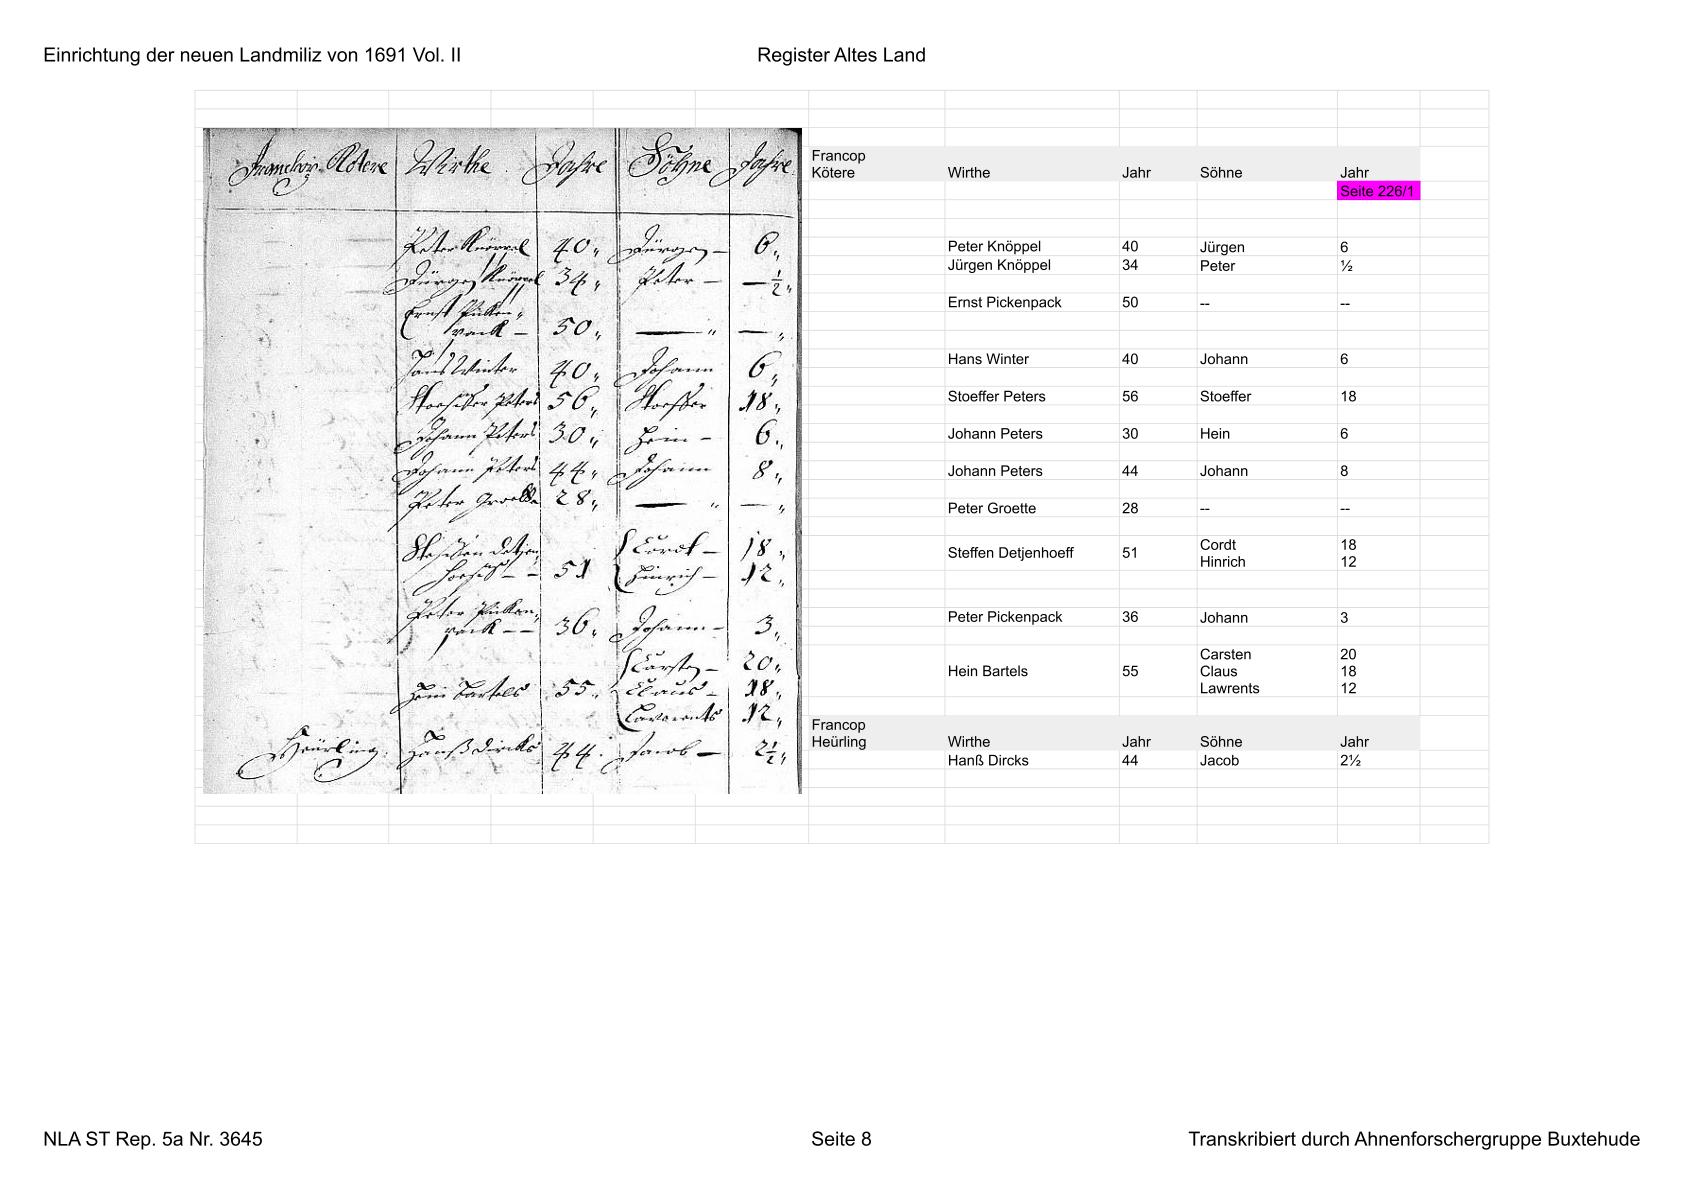 Einrichtung der neuen Landmiliz von 1691 Vol. II Register Altes Land
Francop Kötere Wirthe Jahre Söhne Jahre
Peter Knöppel 40 Jürgen — 6
Jürgen Knöppel 34 Peter — — ½
Ernst Picken,,
pack — 50 — —
Hans Winter 40 Johann 6
Stoeffer Peters 56 Stoeffer 18
Johann Peters 30 Hein — 6
Johann Peters 44 Johann 8
Peter Groette 28 — —
Steffen Detjen,, Cordt — 18
hoeff — — 51 Hinrich — 12
Peter Picken,,
pack — — 36 Johann — 3
Carsten — 20
Hein Bartels 55 Claus — 18
Lawrents 12
Heürling Hanß Dircks 44 Jacob — 2½
Francop
Kötere Wirthe Jahr Söhne Jahr
Seite 226/1
Peter Knöppel 40 Jürgen 6
Jürgen Knöppel 34 Peter ½
Ernst Pickenpack 50 -- --
Hans Winter 40 Johann 6
Stoeffer Peters 56 Stoeffer 18
Johann Peters 30 Hein 6
Johann Peters 44 Johann 8
Peter Groette 28 -- --
Cordt 18
Steffen Detjenhoeff 51
Hinrich 12
Peter Pickenpack 36 Johann 3
Carsten 20
Hein Bartels 55 Claus 18
Lawrents 12
Francop
Heürling Wirthe Jahr Söhne Jahr
Hanß Dircks 44 Jacob 2½
NLA ST Rep. 5a Nr. 3645 Seite 8 Transkribiert durch Ahnenforschergruppe Buxtehude